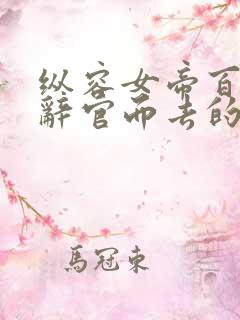 纵容女帝百
辭官而去的
馬冠東